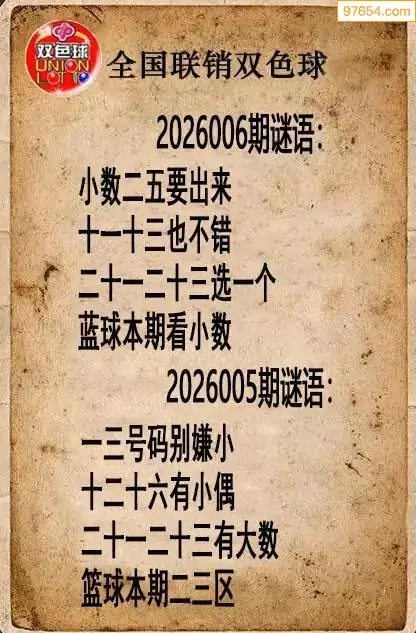 97654.com
双色球
UNION
LOTTO
全国联销双色球
2026006期谜语:
小数二五要出来
十一十三也不错
二十一二十三选一个
蓝球本期看小数
2026005期谜语:
一三号码别嫌小
十二十六有小偶
二十一二十三有大数
篮球本期二三区